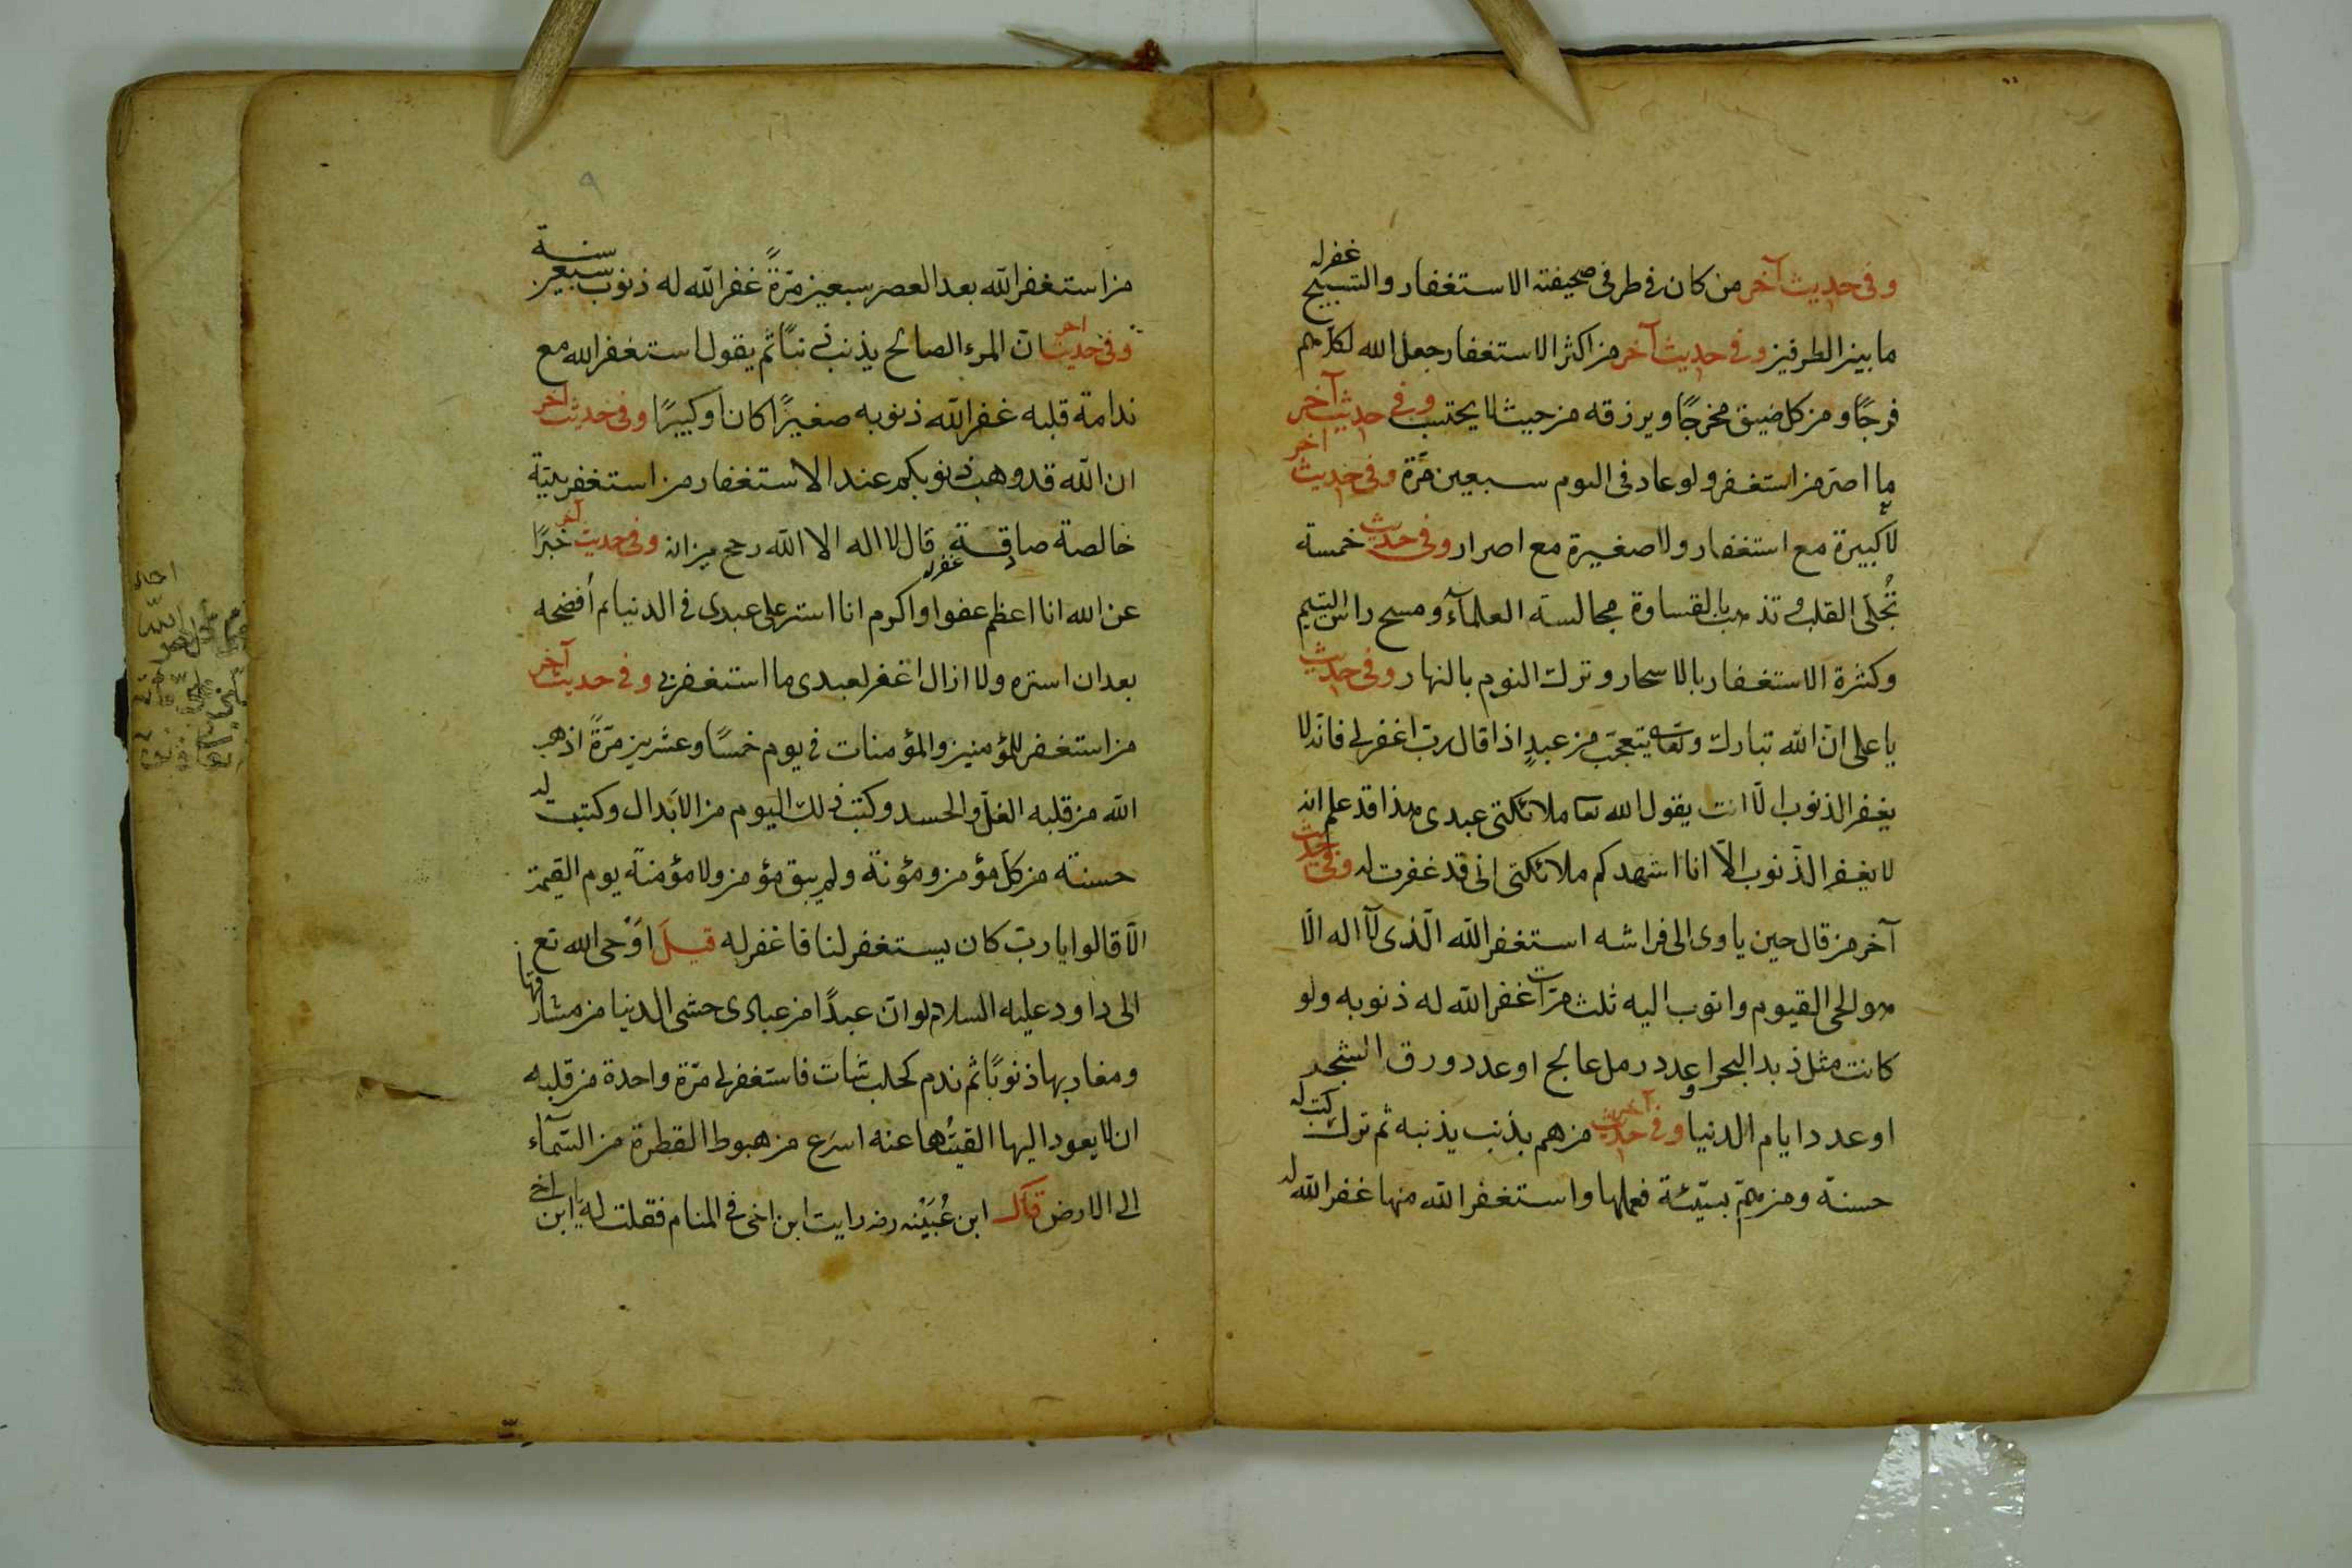 وفى حديث آخر من كان فى طرفى صحيفته الاستغفار والتسبيح غفر له
ما بين الطرفين وفى حديث آخر من اكثر الاستغفار جعل الله لكل هم
فرجًا ومن كل ضيق مخرجًا ويرزقه من حيث لا يحتسب وفى حديث آخر
ما اصر من استغفر ولو عاد فى اليوم سبعين مرّة وفى حديث اخر
لا كبيرة مع استغفار ولا صغيرة مع اصرار وفى حديث خمسة
تُجلى القلب وتذهب بالقساوة مجالسة العلمآء ومسح راس اليتيم
وكثرة الاستغفار بالاسحار وترك النوم بالنهار وفى حديث
يا على انّ الله تبارك وتعا يتعجب من عبدٍ اذا قال ربّ اغفر لى فانّه لا
يغفر الذنوب الّا انت يقول الله تعا ملائكتى عبدى هذا قد علم انه
لا يغفر الذّنوب الّا انا اشهدكم ملائكتى انى قد غفرت له وفى حديث
آخر من قال حين ياوى الى فراشه استغفر الله الّذى لآ اله الّا
هو الحى القيوم واتوب اليه ثلث مرّات غفر الله له ذنوبه ولو
كانت مثل زبد البحر او عدد رمل عالج او عدد ورق الشجر
او عدد ايام الدنيا وفى حديث آخر من هم بذنب يذنبه ثم ترك كتب له
حسنة ومن همّ بسيّئة فعملها واستغفر الله منها غفر الله له
٩
من استغفر الله بعد العصر سبعين مرّةً غفر الله له ذنوب سبعين سنة
وفى حديث اخر انّ المرء الصالح يذنب ذنبًا ثم يقول استغفر الله مع
ندامة قلبه غفر الله ذنوبه صغيرًا كان او كبيرًا وفى حديث آخر
ان الله قد وهب ذنوبكم عند الاستغفار من استغفر بنيّة
خالصة صادقة غفر له قال لا اله الا الله رجح ميزانه وفى حديث آخر خبرًا
عن الله انا اعظم عفوا واكرم انا استر على عبدى فى الدنيا ثم أفضحه
بعد ان استره ولا ازال اغفر لعبدى ما استغفرنى وفى حديث آخر
من استغفر للمؤمنين والمؤمنات فى يوم خمسًا وعشرين مرّةً اذهب
الله من قلبه الغلّ والحسد وكتب فى ذلك اليوم من الابدال وكتبت له
حسنة من كلّ مؤمن ومؤنة ولم يبق مؤمن ولا مؤمنة يوم القيمة
الّا قالوا يا ربّ كان يستغفر لنا فاغفر له قيل اَوْحى الله تع
الى داود عليه السلام لو انّ عبدًا من عبادى حشى الدنيا من مشارقها
ومغاربها ذنوبًا ثم ندم كحلب شات فاستغفر لى مرّة واحدة من قلبه
ان لا يعود اليها القيتُها عنه اسرَع من هبوط القطرة من السّمآء
الى الارض قال ابن عُيَيْنه رضه رايت ابن اخى فى المنام فقلت له يا ابن اخى